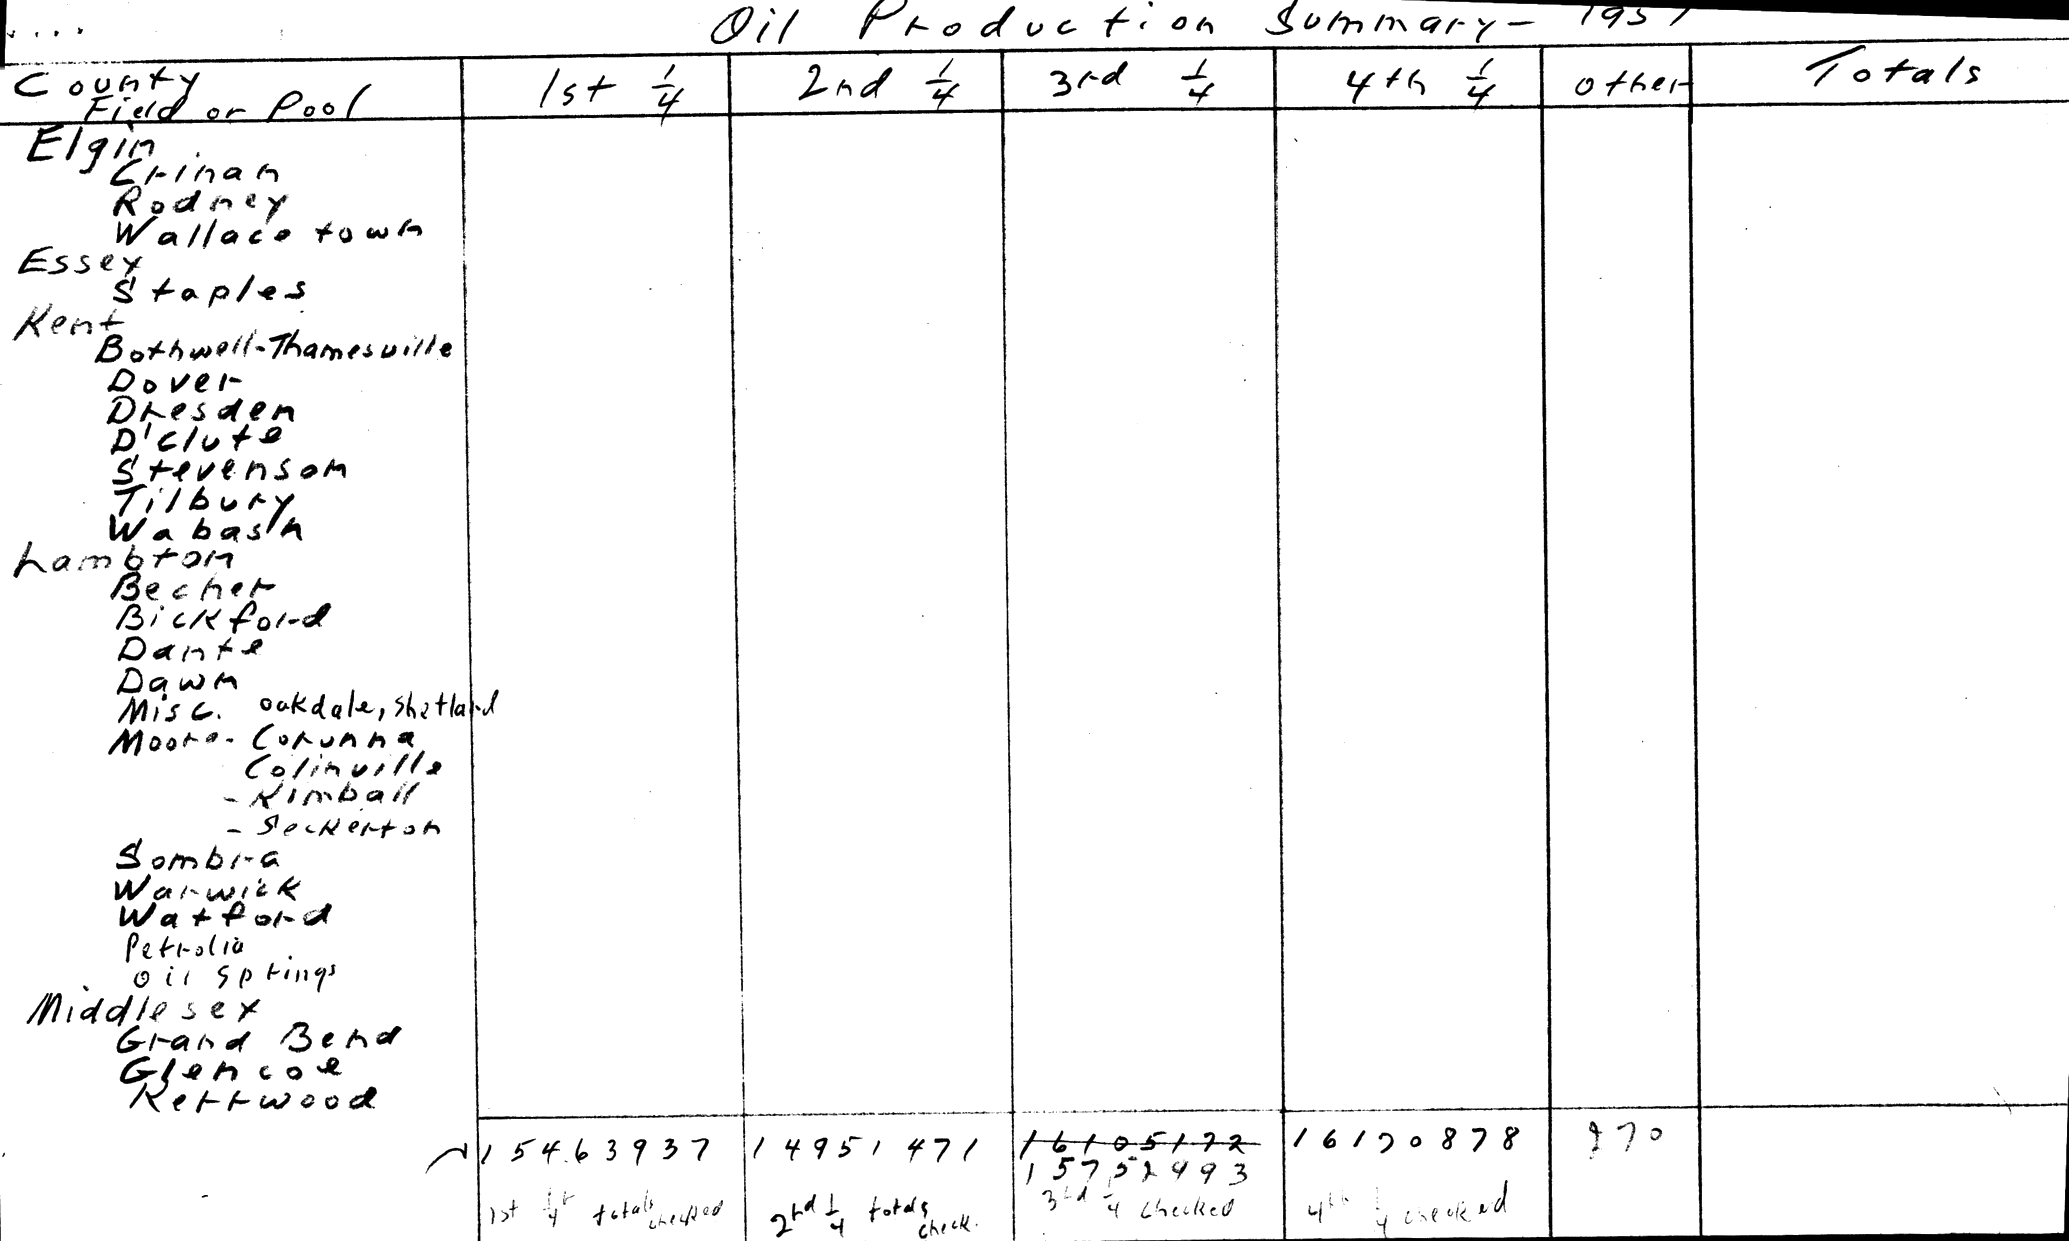 Oil Production Summary- 195
County
Field or Pool
1st 1/4
2nd 1/4
3rd 1/4
4th 1/4
other
Totals
Elgin
Crinan
Rodney
Wallace town
Essex
Staples
Kent
Bothwell-Thamesville
Dover
Dresden
D'Clute
Stevenson
Tilbury
Wabash
Lambton
Becher
Bickford
Dante
Dawn
Misc. oakdale, Shetland
Moore- Corunna
Colinville
- Kimball
- Seckerton
Sombra
Warwick
Watford
Petrolia
oil springs
Middlesex
Grand Bend
Glencoe
Kerrwood
154.63937
14951471
16105172
16170878
270
1st 1/4 totals checked
2nd 1/4 totals check.
3rd 1/4 checked
4th 1/4 checked